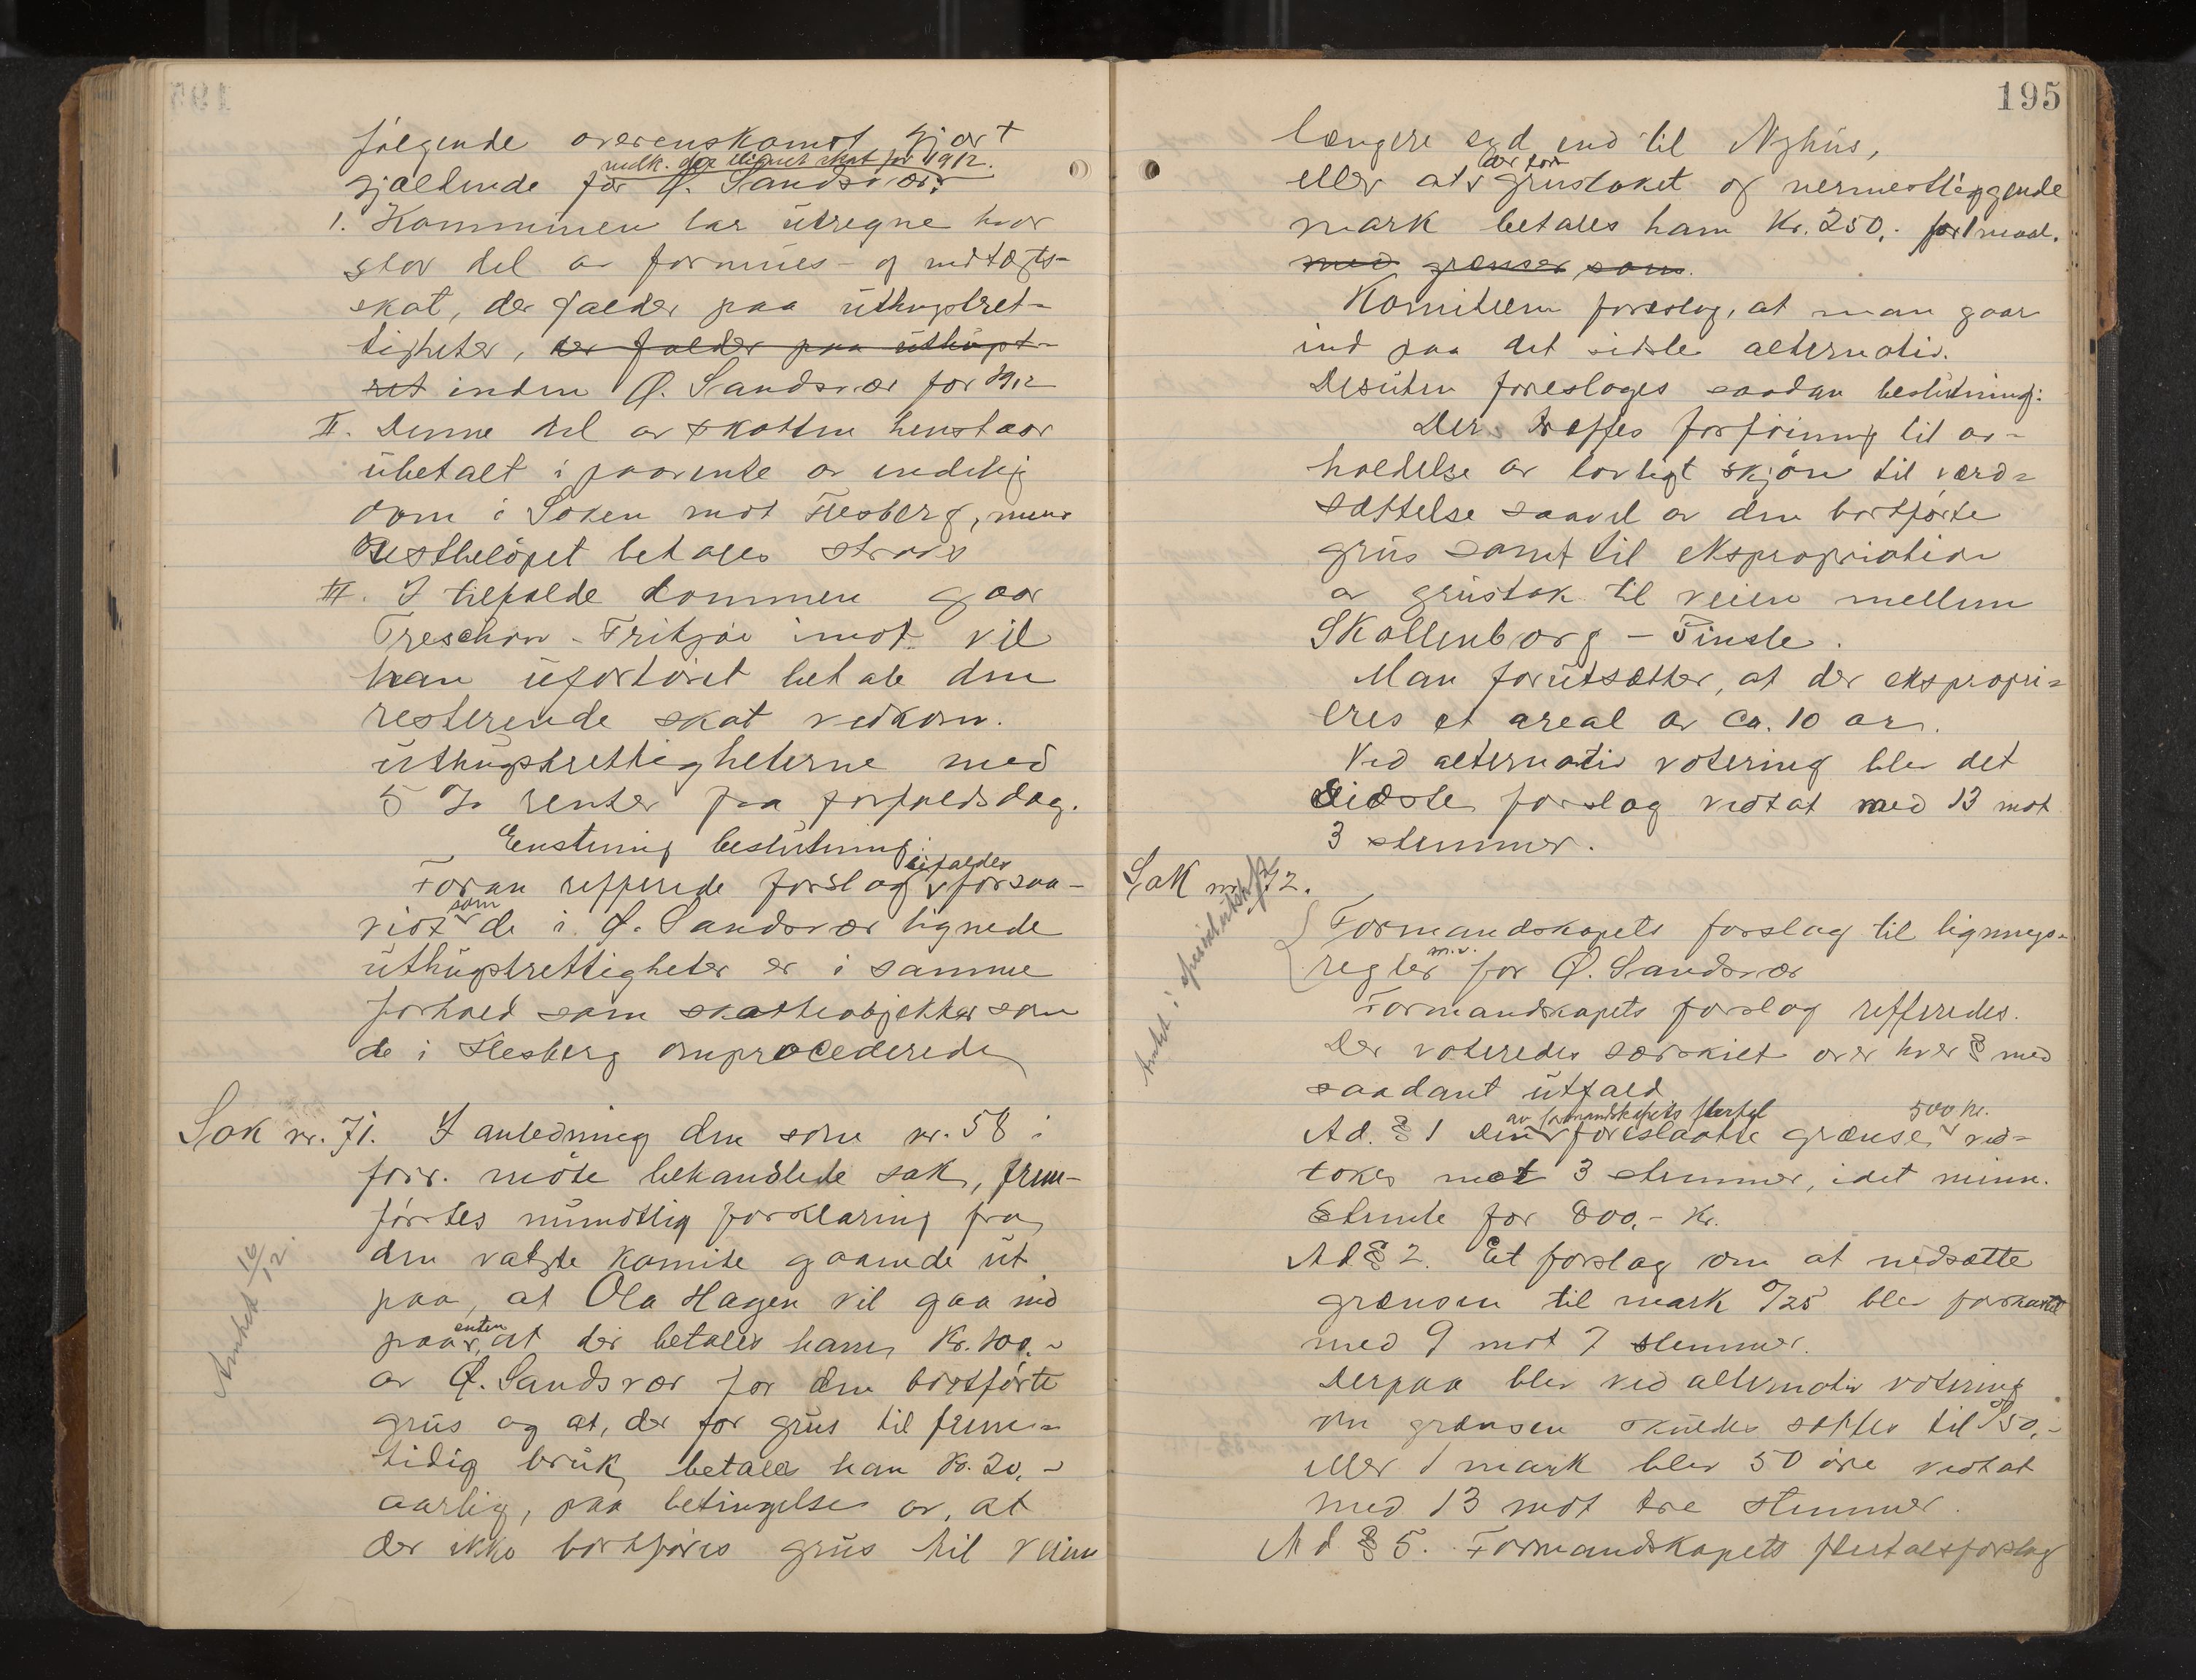 følgende overenskomst gjort
vedk. den lignet skat for 1912.
gjældende for Ø. Sandsvær:
1. Kommunen lar utregne hvor
stor del av formues- og indtægts-
skat, der falder paa uthugstret-
tigheter, der falder paa uthugst-
ret inden Ø. Sandsvær for 1912
II. Denne del av skatten henstaar
ubetalt i paavente av endelig
dom i Saken mot Flesberg, mens
Restbeløpet betales straks
III. I tilfælde dommen gaar
Treschow-Fritzøe imot vil
han ufortøvet betale den
resterende skat vedkom.
uthugstrettigheterne med
5 % renter fra forfaldsdag.
Enstemmig beslutning:
bifaldes
Foran refererede forslag forsaa-
som
vidt de i Ø. Sandsvær lignede
uthugstrettigheter er i samme
forhold som skatteobjekter som
de i Flesberg omprocederede
Sak nr. 71. I anledning den som nr. 58 i
forr. møte behandlede sak, frem-
førtes mundtlig forklaring fra
den valgte komite gaaende ut
paa, at Ola Hagen vil gaa ind
enten
paa, at der betales ham Kr. 100.-
av Ø. Sandsvær for den bortførte
grus og at, der for grus til frem-
tidig bruk betales ham Kr. 20,-
aarlig, paa betingelse av, at
der ikke bortføres grus til veien
Anket 16/12.
195
længere syd end til Nyhus,
der for
eller at grustaket og nermestliggende
mark betales ham Kr. 250,- for 1 maal.
med grænser som.
Komiteen foreslog, at man gaar
ind paa det sidste alternativ.
Desuten foreslages saadan beslutning:
Der træffes forføining til av-
holdelse av lovligt skjøn til værd-
sættelse saavel av den bortførte
grus samt til ekspropriation
av grustak til veien mellem
Skollenborg - Tinste.
Man forutsætter, at der ekspropri-
eres et areal av ca. 10 ar.
Ved alternativ votering blev det
Sidste forslag vedtat med 13 mot
3 stemmer.
Sak nr. 72.
Formandskapets forslag til lignings-
m.v.
regler for Ø. Sandsvær
Formandskapets forslag refferedes.
Der voteredes særskilt over hver § med
saadant utfald
av formandskapets flertal 500 kr.
Ad. § 1 Den foreslaatte grænse ved-
tokes mot 3 stemmer, idet minn.
Stemte for 800,- Kr.
Ad § 2. Et forslag om at nedsætte
grænsen til mark 0/25 blev forkastet
med 9 mot 7 stemmer.
Derpaa blev ved alternativ votering
om grænsen skulde sættes til 0/50,-
eller 1 mark blev 50 øre vedtat
med 13 mot tre stemmer.
Ad § 5. Formandskapets flertalsforslag